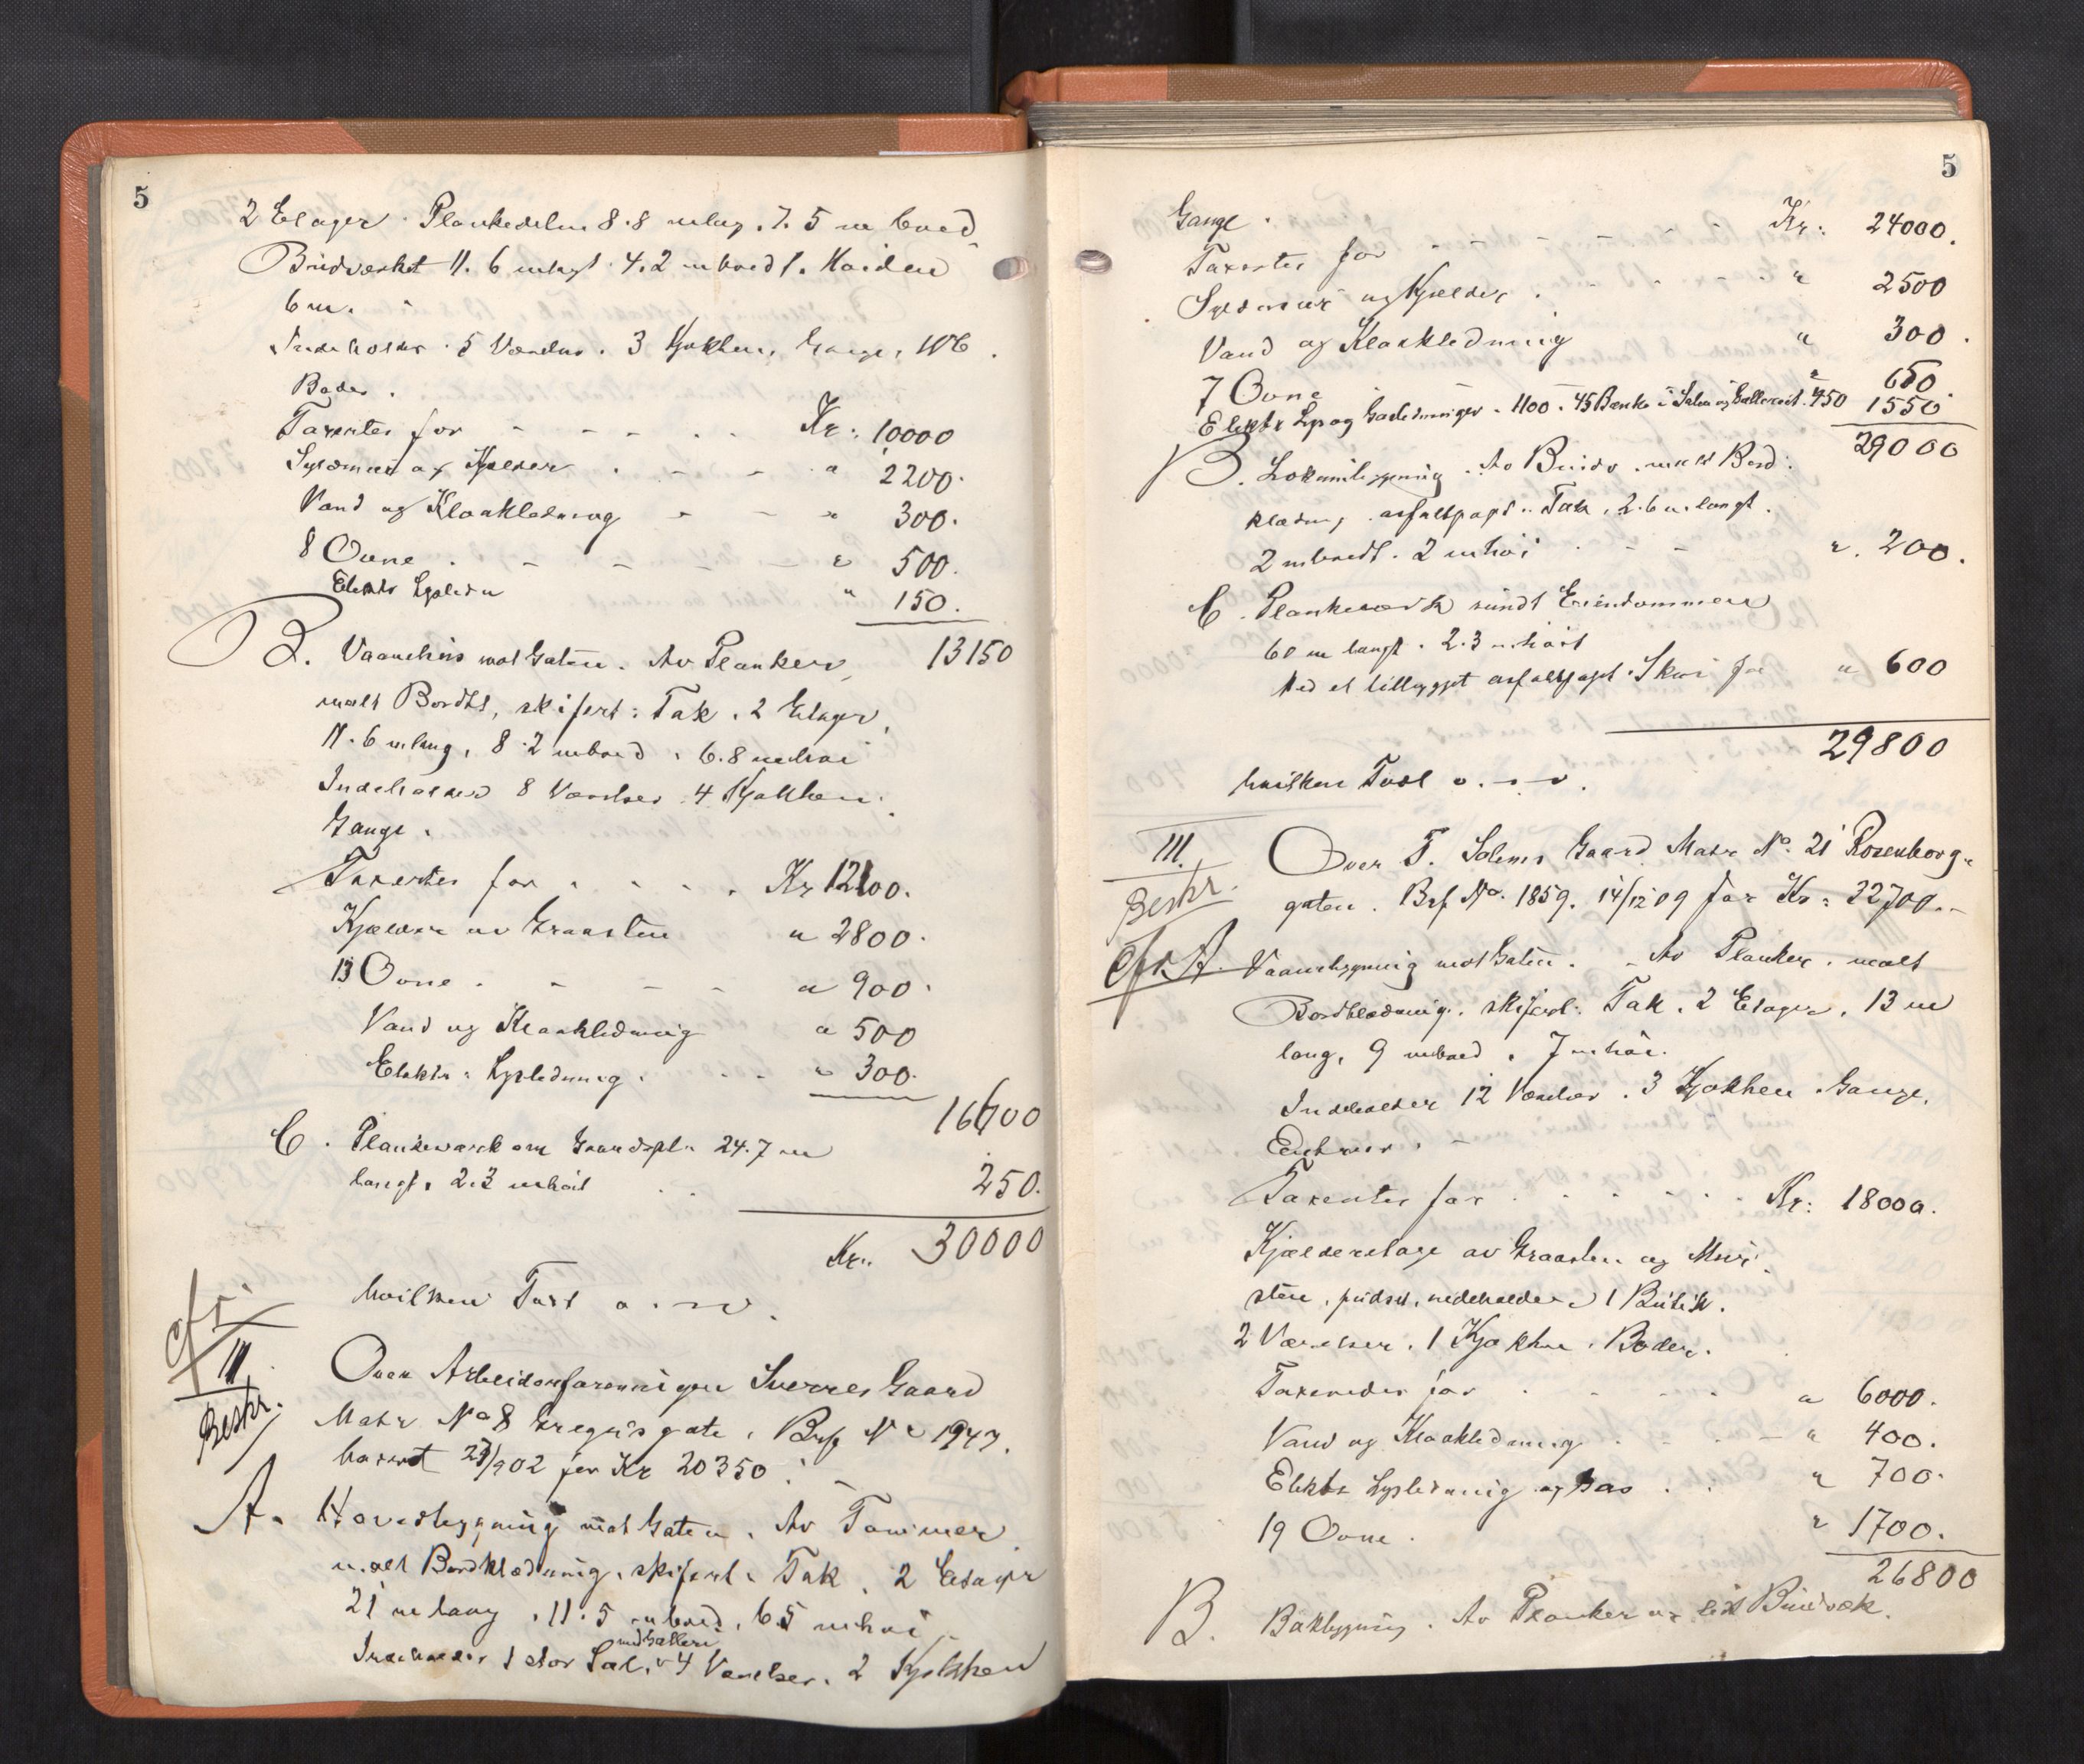 5
2 Etager. Plankedelen 8.8 m lang. 7.5 m bred
Bindverket 11.6 m langt 4.2 m bredt. Høiden
6 m.
Indeholder 5 Værelser. 3 Kjøkken, Gange, WC.
Boder.
Taxertes for - - - - Kr: 10000
Syldmur og Kjelder - - - " 2200.
Vand og Kloakledning - - " 300.
8 Ovne - - - - " 500.
Elektr Lysledn " 150.
13150
B. Vaanehus mot Gaten. Av Planker,
malt Bordkl, skifert: Tak. 2 Etager,
11.6 m lang, 8.2 m bred. 6.8 m høi
Indeholder 8 Værelser. 4 Kjøkken.
Gange.
Taxertes for - - - Kr 12100.
Kjelder av Graasten " 2800.
13 Ovne. - - - " 900.
Vand og Kloakledning " 500
Elektr: Lysledning. - - " 300.
16600
C. Plankeværk om Gaardspl: 24.7 m
langt. 2.3 m høit 250.
Kr. 30000
hvilken Taxt o.s.v.
cfr.
III.
Beskr.
Over Arbeiderforeningen Sverres Gaard
Matr No 8 Gregusgate. Brf No 1947.
taxert 29/9 02 for Kr 20350.
A. Hovedbygning mot Gaten. Av Tømmer
malt Bordklædning, skifert: Tak. 2 Etager
21 m lang. 11.5 m bred. 6.5 m høi.
med Galleri
Indeholder 1 stor Sal, 4 Værelser. 2 Kjøkken
5
Gange.
Taxertes for - - - - Kr: 24000.
Syldmur og Kjelder. - - - " 2500
Vand og Kloakledning " 300.
7 Ovne - - - " 650.
Elektr Lys og Gasledninger 1100. 45 Bænke i Salen og Galleriet 450 1550
29000
B. Lokumbygning. Av Bindv. malt Bord:
klædn, asfaltpapt: Tak, 2.6 m langt.
2 m bredt. 2 m høi - - - " 200.
C. Plankeværk rundt Eiendommen
60 m langt. 2.3 m høit
Med et tilbygget asfaltpapt Skur for " 600
29800
hvilken Taxt o.s.v.
III.
Beskr.
Over T. Solems Gaard Matr No. 21 Rosenborg-
gaten. Brf No. 1859. 14/12 09 for Kr: 22700.-
cfr. A. Vaanebygning mot Gaten. Av Planker. malt
Bordklædning. skifert: Tak. 2 Etager. 13 m
lang, 9 m bred. 7 m høi.
Indeholder 12 Værelser. 3 Kjøkken Gange,
Entreer. -
Taxertes for - - - - Kr: 18000.
Kjælderetage av Graasten og Mur:
sten, pudset, indeholder 1 Butik.
2 Værelser. 1 Kjøkken. Boder.
Taxeredes for - - - - " 6000.
Vand og Kloakledning - - - " 400.
Elektr Lysledning og Gas - - " 700.
19 Ovne. " 1700.
26800
B. Bakbygning. Av Planker og lidt Bindverk.